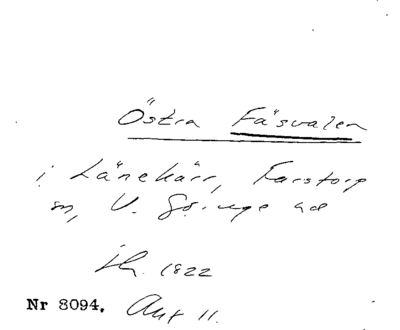 Östra Fäsvalen
i Länekärr, Farstorp
sn, V. Göinge hd
Ih. 1822
Nr 8094. Akt 11.